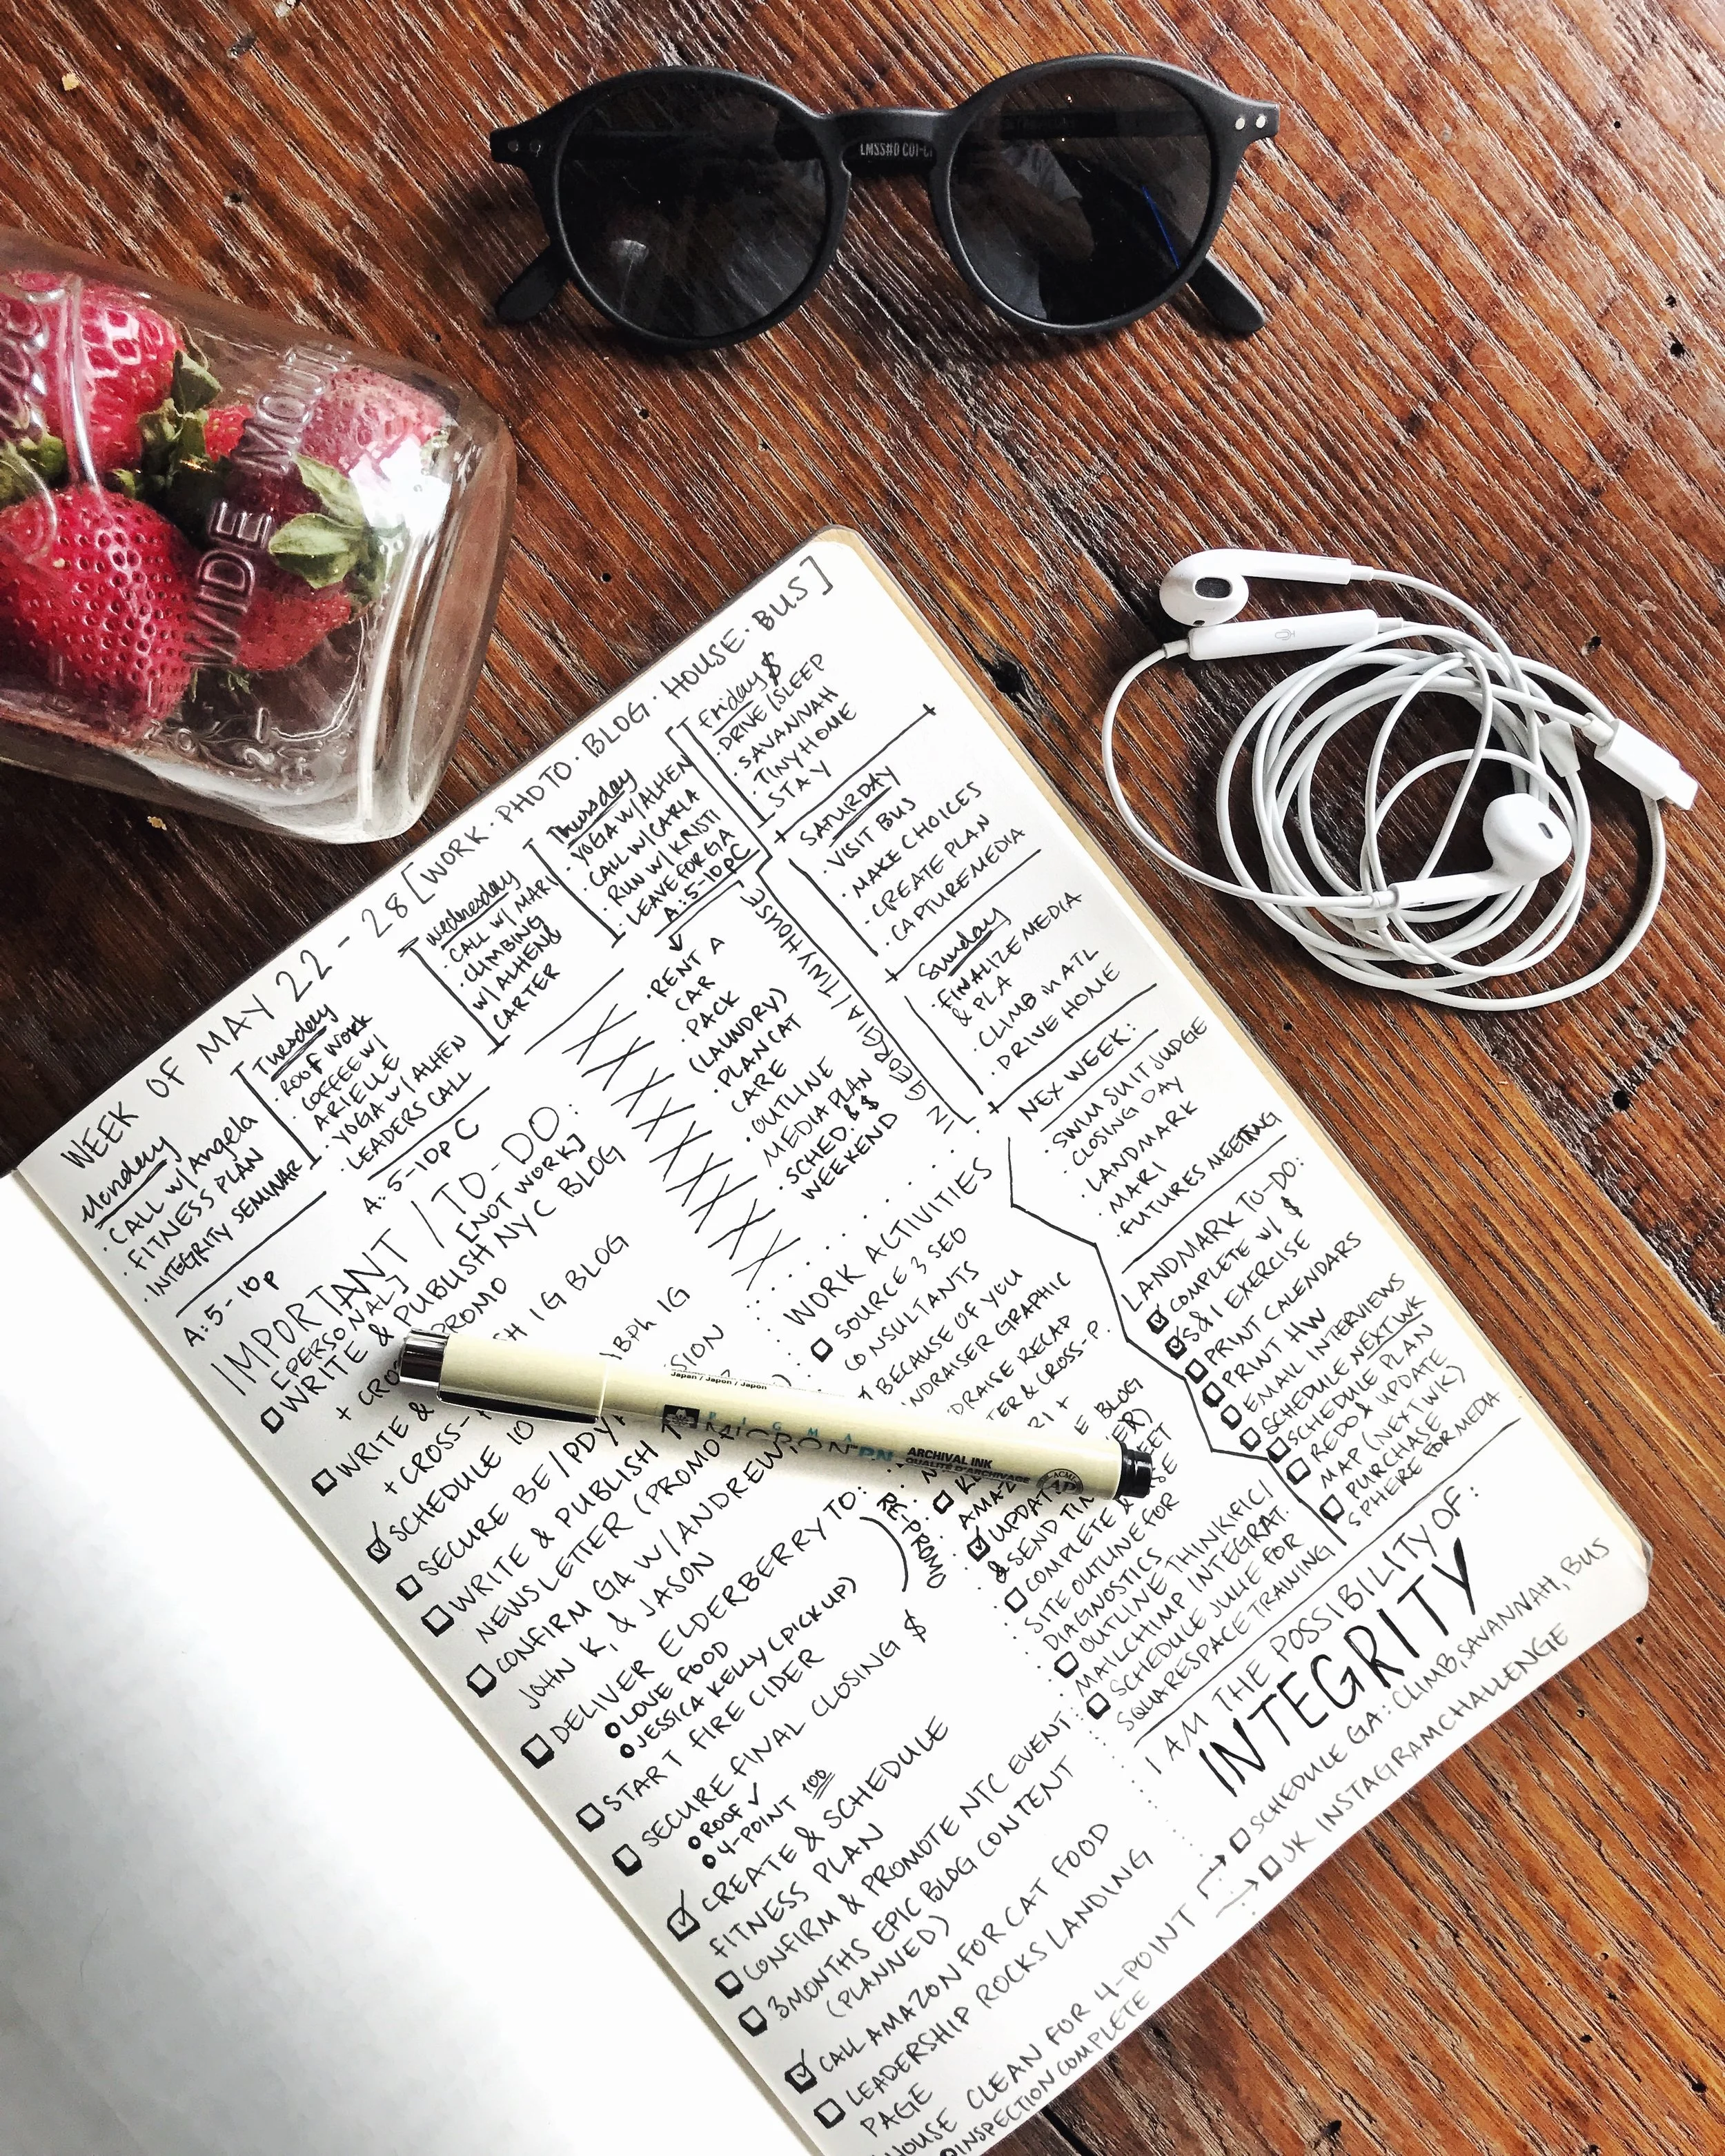 LMSS#D COT-C
WIDE MOUT
WEEK OF MAY 22 - 28 [WORK · PHOTO · BLOG · HOUSE · BUS]
Monday
· CALL W/ Angela
· FITNESS PLAN
· INTEGRITY SEMINAR
A: 5-10p
Tuesday
· ROOF WORK
· COFFEE W/
ARIELLE
· YOGA W/ ALHEN
· LEADERS CALL
A: 5-10p C
Wednesday
· CALL W/ MARI
· CLIMBING
W/ ALHEN &
CARTER
Thursday
· YOGA W/ ALHEN
· CALL W/ CARLA
· RUN W/ KRISTI
· LEAVE FOR GA
A: 5-10p C
Friday $
· DRIVE | SLEEP
· SAVANNAH
· TINY HOME
STAY
SATURDAY
· VISIT BUS
· MAKE CHOICES
· CREATE PLAN
· CAPTURE MEDIA
Sunday
· FINALIZE MEDIA
& PLA
· CLIMB in ATL
· DRIVE HOME
NEX WEEK:
· SWIM SUIT JUDGE
· CLOSING DAY
· LANDMARK
· MARI
· FUTURES MEETING
· RENT A
CAR
· PACK
(LAUNDRY)
· PLAN CAT
CARE
· OUTLINE
MEDIA PLAN
· SCHED. & $
WEEKEND
IN GEORGIA / TINY HOUSE
IMPORTANT / TO-DO:
[PERSONAL] [NOT WORK]
WRITE & PUBLISH NYC BLOG
+ CRO PROMO
WRITE & SH IG BLOG
+ CROSS-
SCHEDULE 10 ABPh IG
SECURE BE / PDY SION
WRITE & PUBLISH
NEWSLETTER (PROMO
CONFIRM GA W/ ANDREW,
JOHN K, & JASON
DELIVER ELDERBERRY TO:
LOVE FOOD
JESSICA KELLY (PICK UP)
START FIRE CIDER
SECURE FINAL CLOSING $
ROOF ✓
4-POINT 100
CREATE & SCHEDULE
FITNESS PLAN
CONFIRM & PROMOTE NTC EVENT
3 MONTHS EPIC BLOG CONTENT
(PLANNED)
CALL AMAZON FOR CAT FOOD
LEADERSHIP ROCKS LANDING
PAGE
HOUSE CLEAN FOR 4-POINT
INSPECTION COMPLETE
RE-PROMO
WORK ACTIVITIES
SOURCE 3 SEO
CONSULTANTS
BECAUSE OF YOU
NDRAISER GRAPHIC
DRAISE RECAP
TER & CROSS-P.
RI +
E BLOG
AMAZ VER)
UPDAT EET
& SEND TIM
COMPLETE & SE
SITE OUTLINE FOR
DIAGNOSTICS
OUTLINE THINKIFIC /
MAILCHIMP INTEGRAT.
SCHEDULE JULIE FOR
SQUARESPACE TRAINING
Japan / Japon / Japon
PIGMA
MICRON PN
ARCHIVAL INK
QUALITÉ D'ARCHIVAGE
ACMI
AP
LANDMARK TO-DO:
COMPLETE W/ $
S&I EXERCISE
PRINT CALENDARS
PRINT HW
EMAIL INTERVIEWS
SCHEDULE NEXT WK
SCHEDULE PLAN
REDO & UPDATE
MAP (NEXT WK)
PURCHASE
SPHERE FOR MEDIA
I AM THE POSSIBILITY OF:
INTEGRITY
SCHEDULE GA: CLIMB, SAVANNAH, BUS
UK INSTAGRAM CHALLENGE